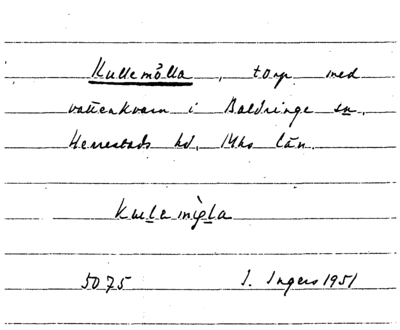 Kullemölla, torp med
vattenkvarn i Baldringe sn,
Herrestads hd, Mhs län.
5075 I. Ingers 1951